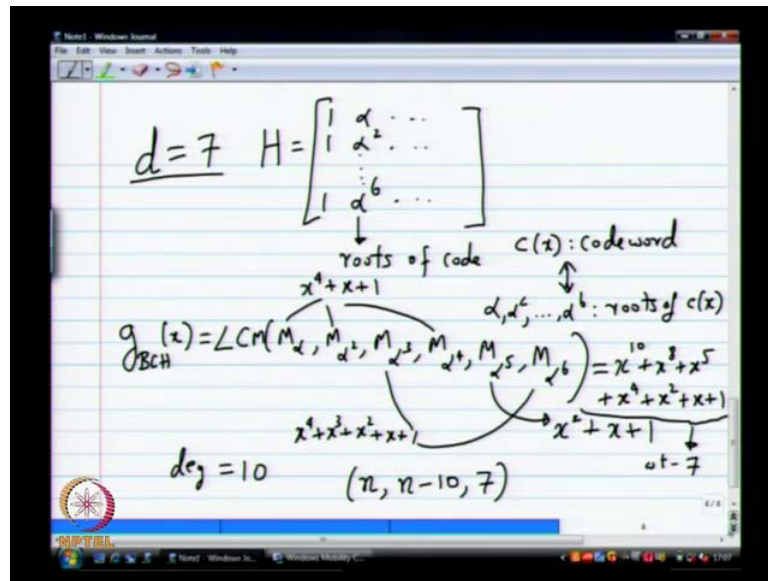 Note1 - Windows Journal
File Edit View Insert Actions Tools Help
d = 7 H = [ 1 α ...
1 α² ...
⋮
1 α⁶ ... ]
↓
roots of code
c(x) : codeword
↕
α, α², ..., α⁶ : roots of c(x)
x⁴+x+1
g_BCH(x) = LCM(M_α, M_α², M_α³, M_α⁴, M_α⁵, M_α⁶) = x¹⁰+x⁸+x⁵
+x⁴+x²+x+1
x⁴+x³+x²+x+1
x²+x+1
wt-7
deg = 10 (n, n-10, 7)
6/6
NPTEL
Note1 - Windows Jo...
Windows Mobility C...
17:07